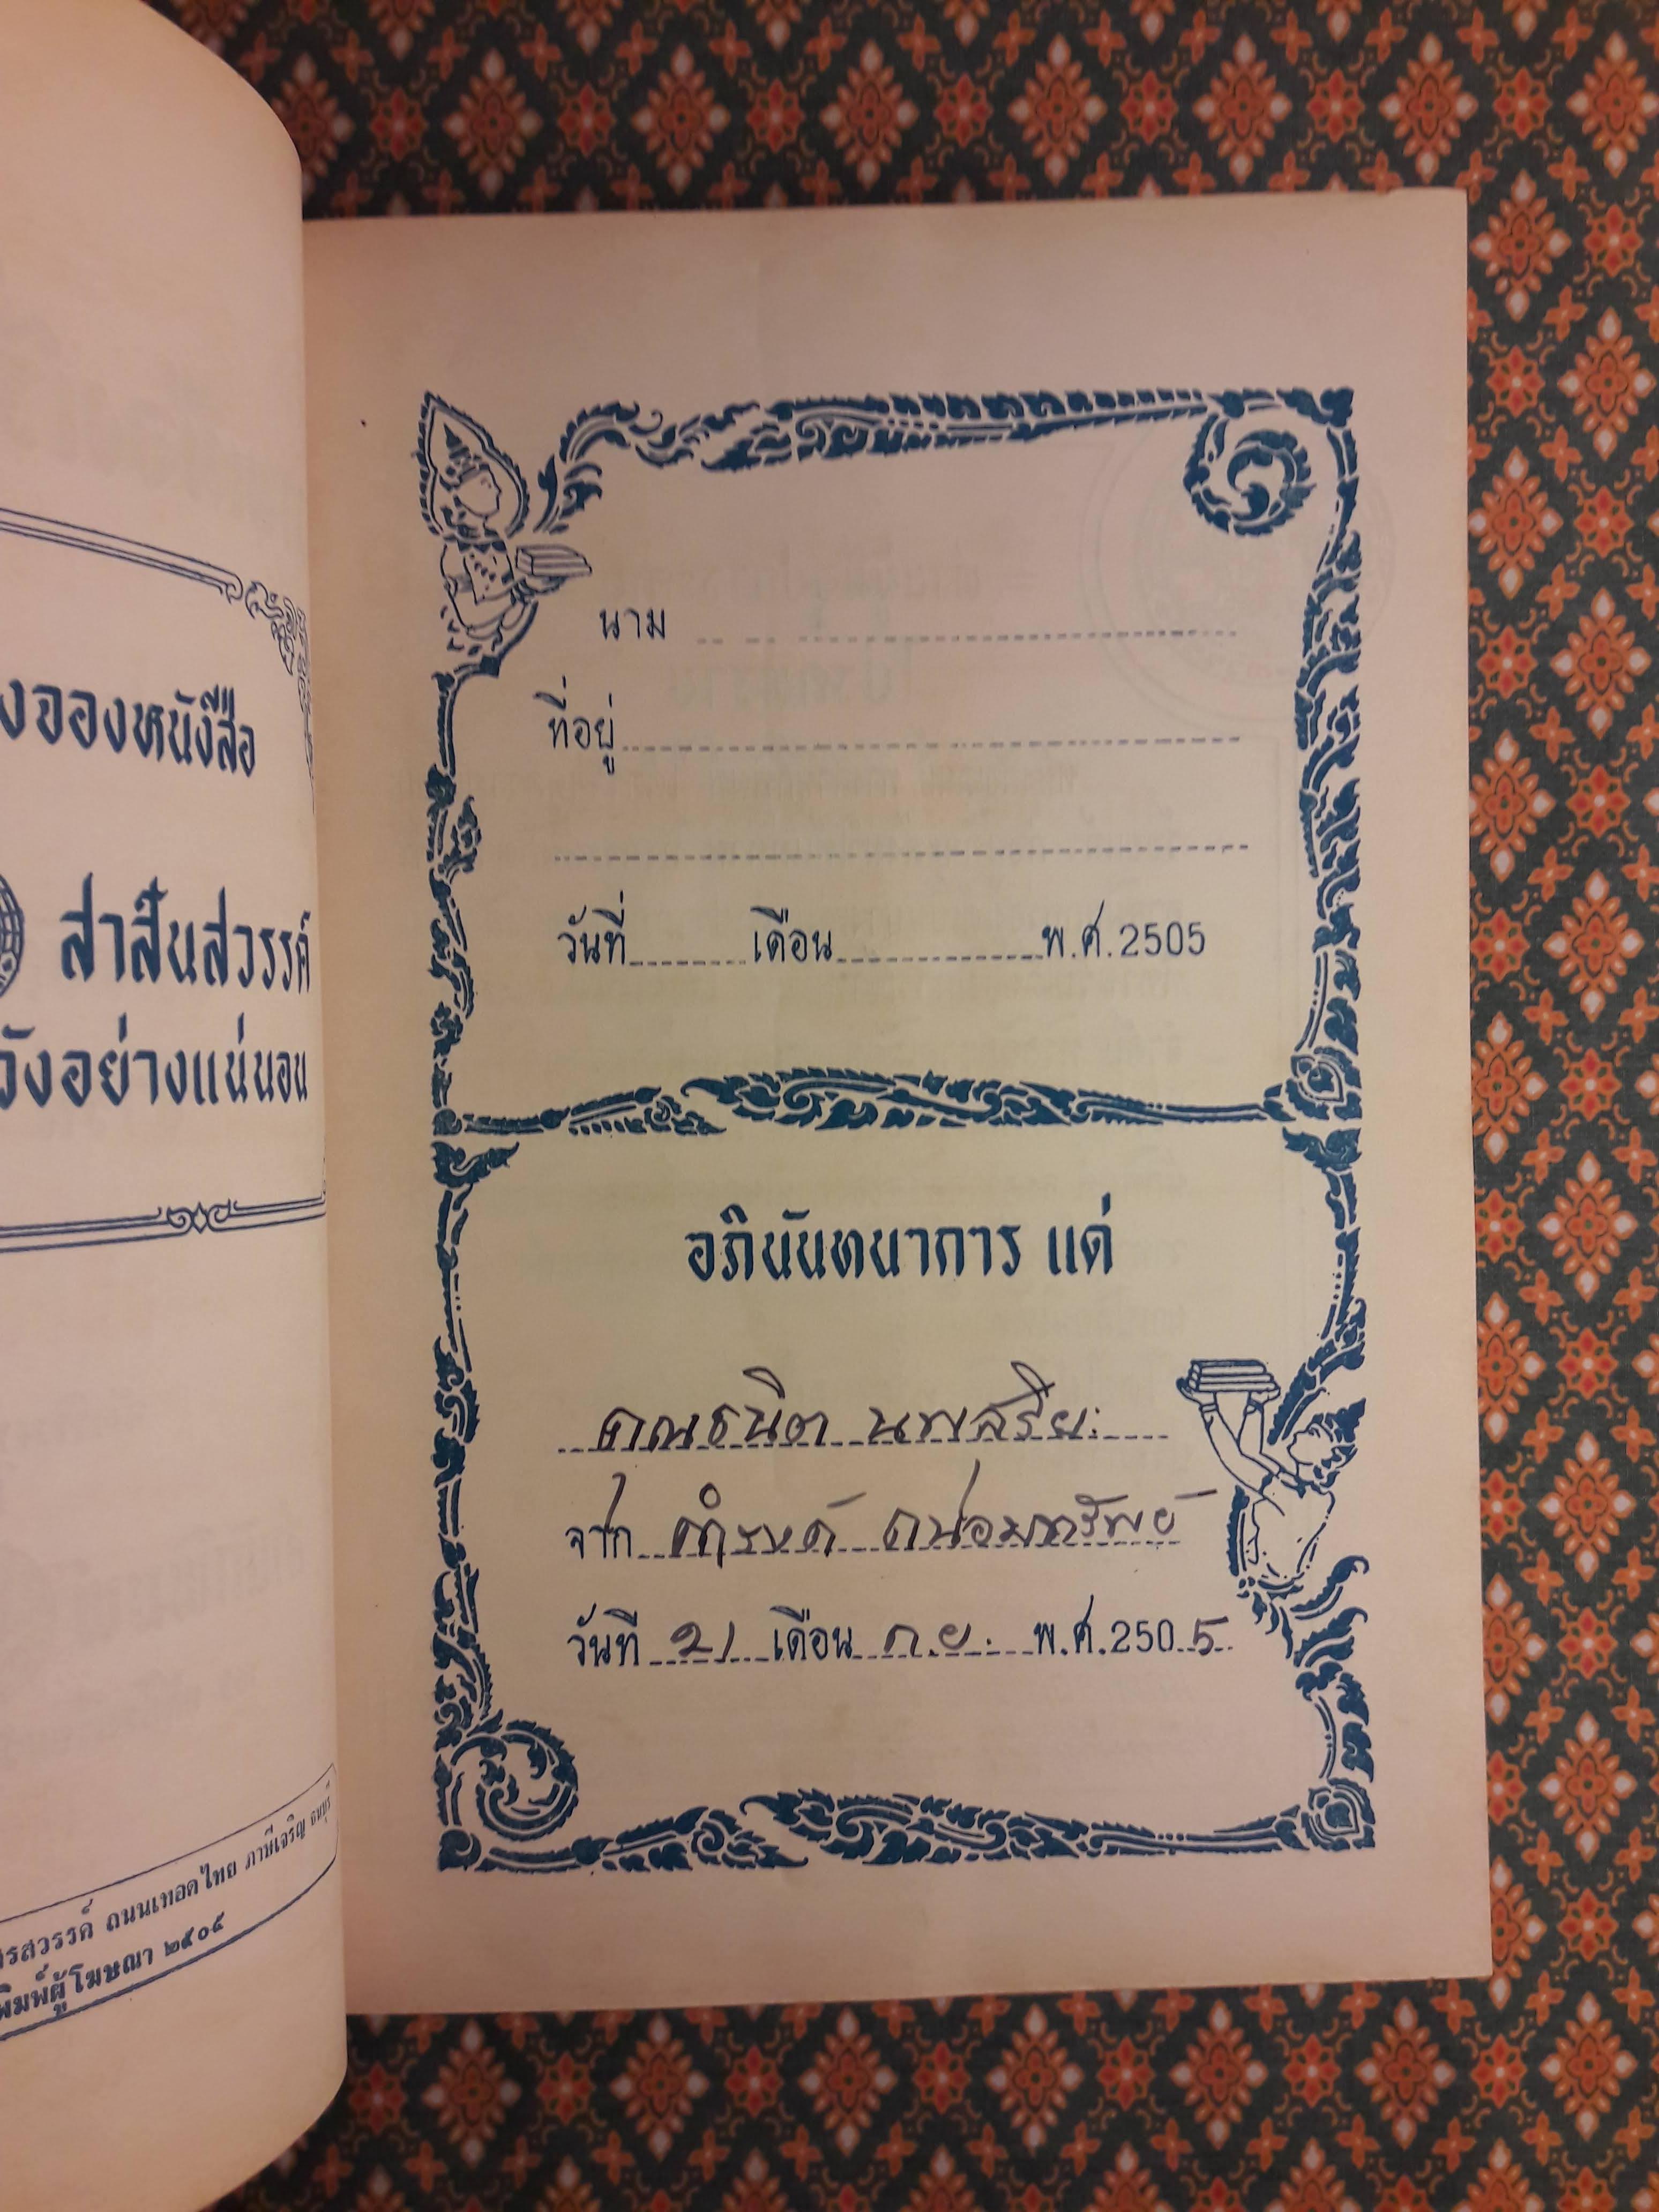 งจองหนังสือ
สาส์นสวรรค์
วังอย่างแน่นอน
รสวรรค์ ถนนเทอดไทย ภาษีเจริญ ธนบุรี
พิมพ์ผู้โฆษณา ๒๕๐๕
นาม
ที่อยู่
วันที่ เดือน พ.ศ.2505
อภินันทนาการ แด่
คุณธนิต นพสรีย:
จาก กำรงค์ ถนอมทรัพย์
วันที่ 21 เดือน ก.ย. พ.ศ.2505